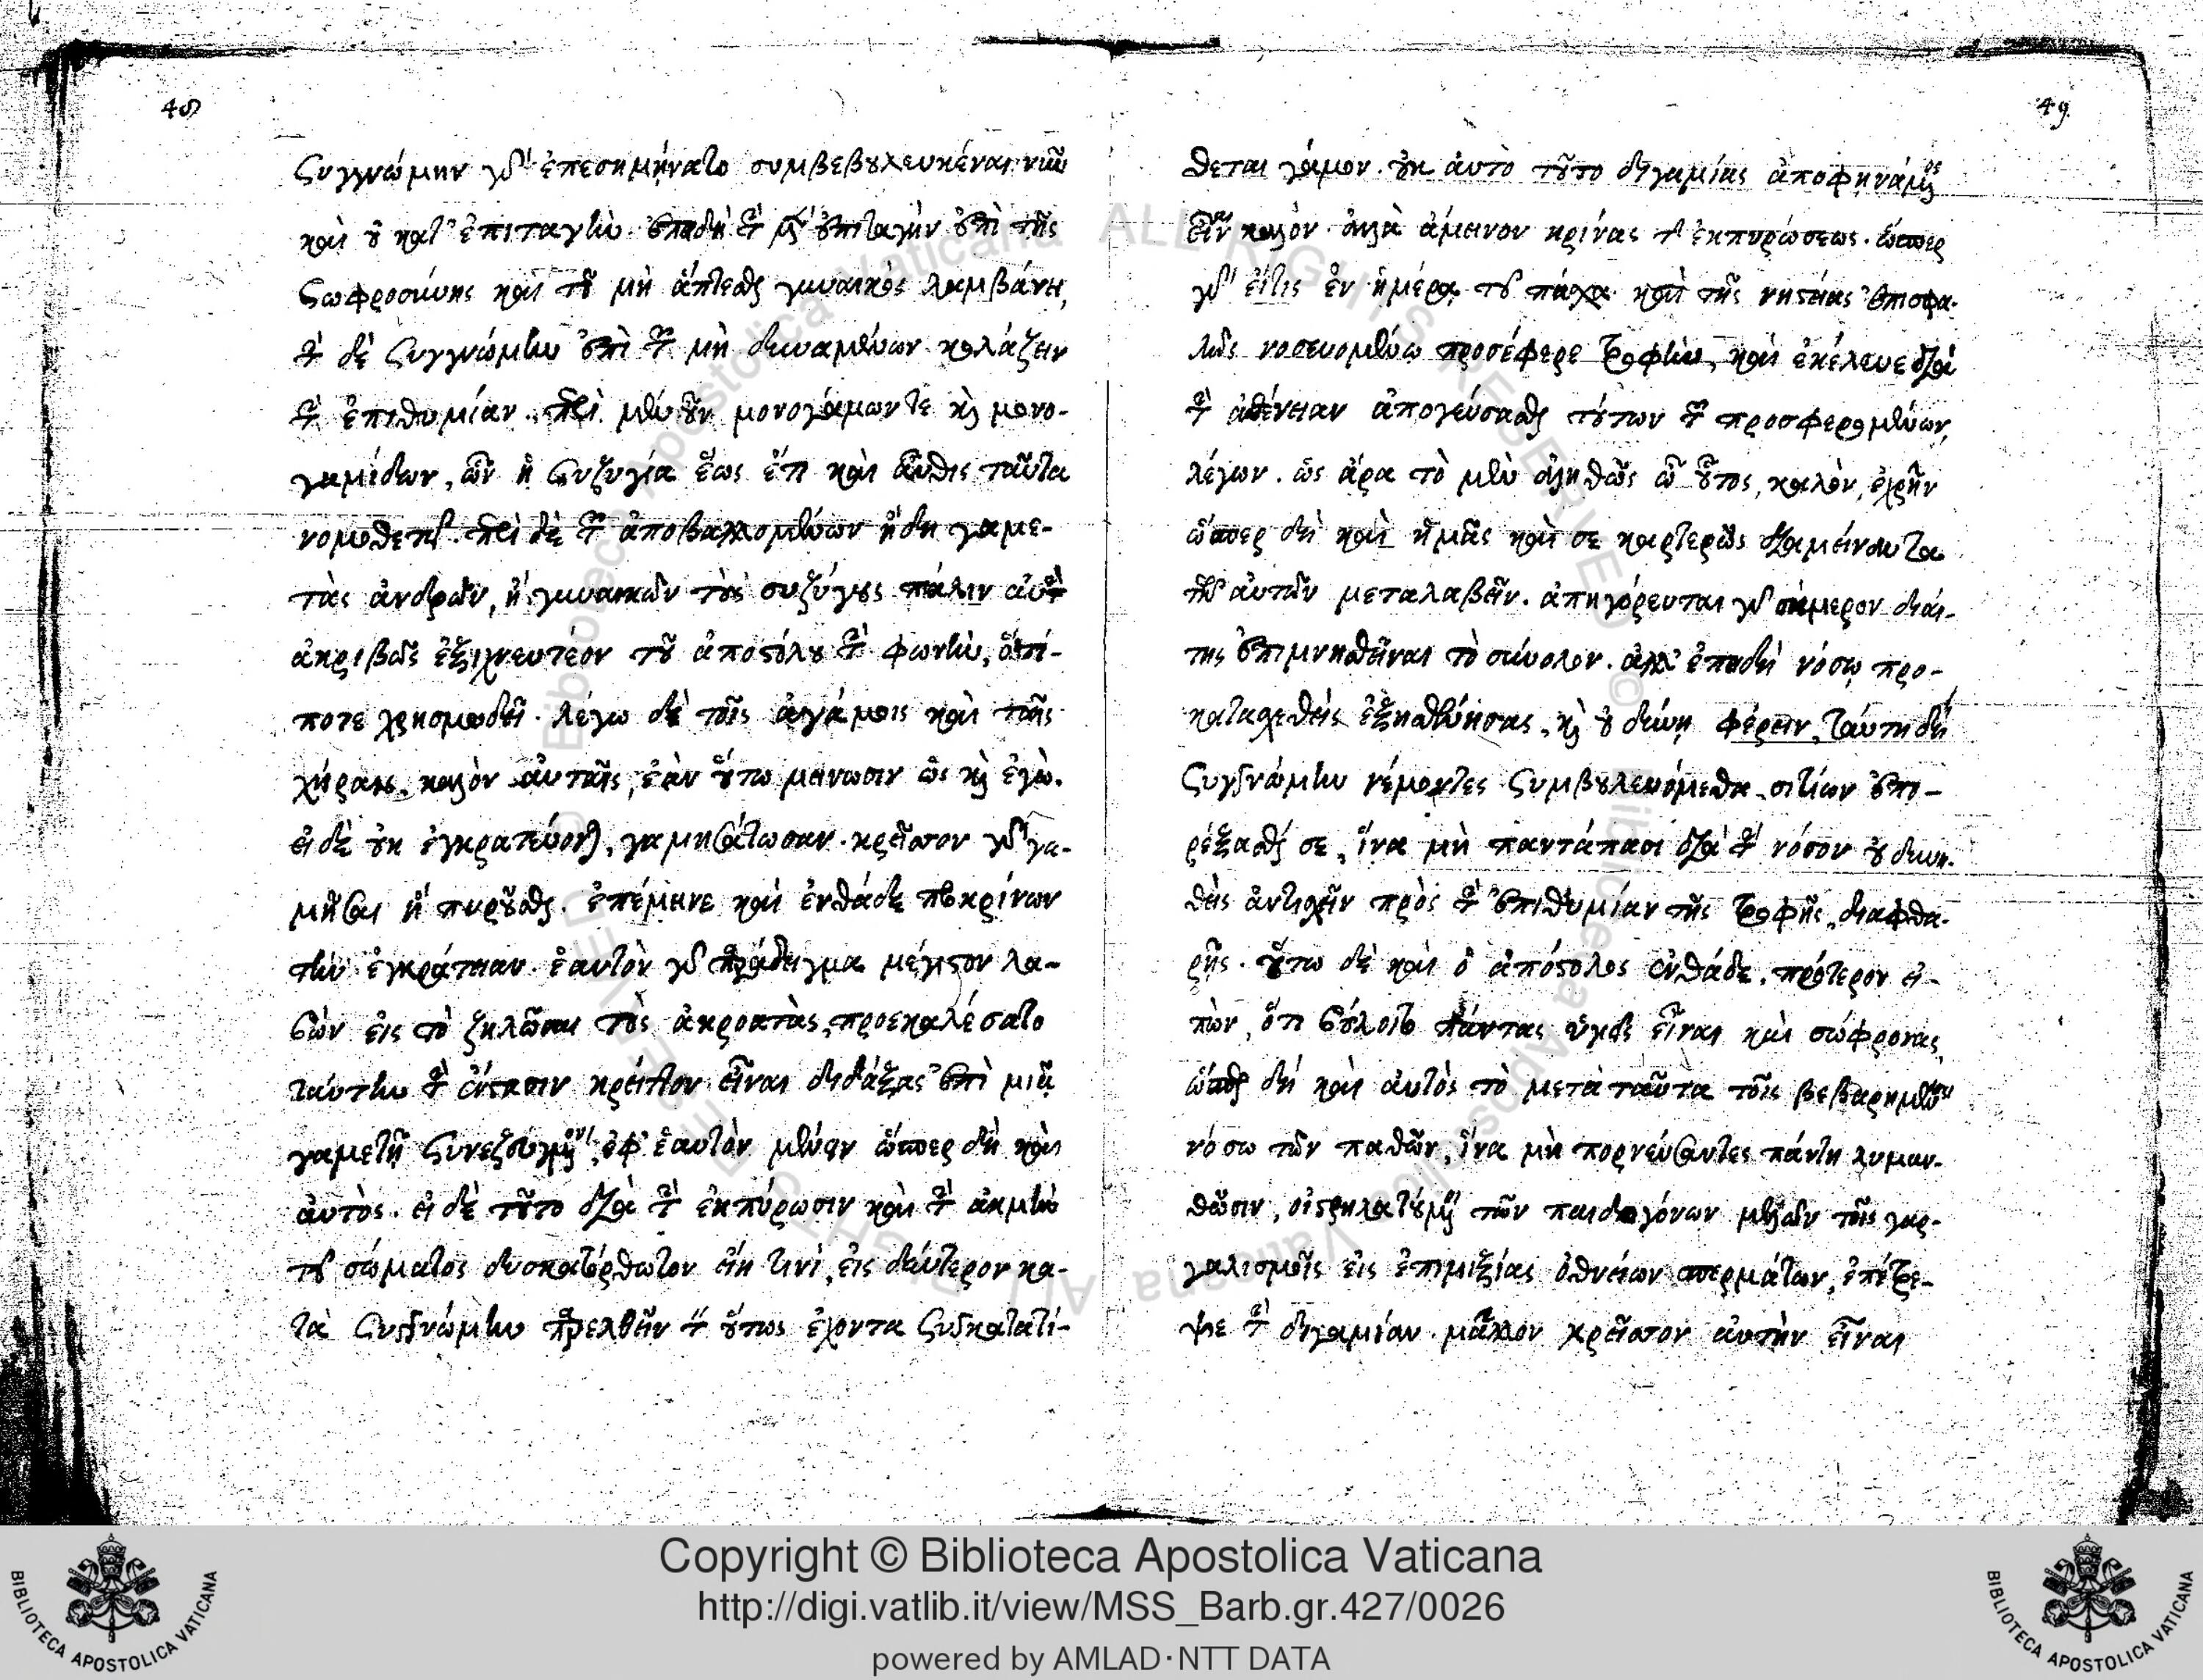 48
συγγνώμην γὰρ ἐπεσημήνατο συμβεβουλευκέναι νῦν
καὶ οὐ κατ' ἐπιταγὴν. ἐπειδὴ τὴν μὲν ἐπιταγὴν ἐπὶ τῆς
σωφροσύνης καὶ τοῦ μὴ ἅπτεσθαι γυναικὸς λαμβάνει,
τὴν δὲ συγγνώμην ἐπὶ τῶν μὴ δυναμένων κολάζειν
τὴν ἐπιθυμίαν. περὶ μὲν οὖν μονογάμων τε καὶ μονο-
γαμίδων, ὧν ἡ συζυγία ἕως ἔτι καὶ αὖθις ταῦτα
νομοθετεῖ. περὶ δὲ τῶν ἀποβαλλομένων ἤδη γαμε-
τὰς ἀνδρῶν, ἢ γυναικῶν τοὺς συζύγους πάλιν αὐτὴν
ἀκριβῶς ἐξιχνευτέον τοῦ ἀποστόλου τὴν φωνὴν, ὅτι-
ποτε χρησμωδεῖ. λέγω δὲ τοῖς ἀγάμοις καὶ ταῖς
χήραις. καλὸν αὐταῖς, ἐὰν οὕτω μείνωσιν ὡς καὶ ἐγὼ.
εἰ δὲ οὐκ ἐγκρατεύονται, γαμησάτωσαν. κρεῖσσον γὰρ γα-
μῆσαι ἢ πυροῦσθαι. ἐπέμεινε καὶ ἐνθάδε προκρίνων
τὴν ἐγκράτειαν. ἑαυτὸν γὰρ παράδειγμα μέγιστον λα-
βὼν εἰς τὸ ζηλῶσαι τοὺς ἀκροατὰς, προεκαλέσατο
ταύτην τὴν ἔνστασιν κρεῖττον εἶναι διδάξας ἐπὶ μιᾷ
γαμετῇ συνεζευγμένον, ἐφ' ἑαυτὸν μένειν ὥσπερ δὴ καὶ
αὐτὸς. εἰ δὲ τοῦτο διὰ τὴν ἐκπύρωσιν καὶ τὴν ἀκμὴν
τοῦ σώματος δυσκατόρθωτον εἴη τινὶ, εἰς δεύτερον κα-
τὰ συγγνώμην παρελθεῖν τὸν οὕτως ἔχοντα συγκατατί-
49
θεται γάμον. οὐκ αὐτὸ τοῦτο διγαμίας ἀποφηνάμενος
εἶναι καλὸν. ἀλλὰ ἄμεινον κρίνας τῆς ἐκπυρώσεως. ὥσπερ
γὰρ εἴ τις ἐν ἡμέρᾳ τοῦ πάσχα καὶ τῆς νηστείας ἐπισφα-
λῶς νοσευομένῳ προσέφερε τροφὴν, καὶ ἐκέλευε διὰ
τὴν ἀσθένειαν ἀπογεύσασθαι τούτων τῶν προσφερομένων,
λέγων. ὡς ἄρα τὸ μὲν ἀληθῶς ὦ οὗτος, καλὸν, ἐχρῆν
ὥσπερ δὴ καὶ ἡμᾶς καὶ σε καρτερῶς διαμείναντα
τῶν αὐτῶν μεταλαβεῖν. ἀπηγόρευται γὰρ σήμερον διαί-
της ἐπιμνησθῆναι τὸ σύνολον. ἀλλ' ἐπειδὴ νόσῳ προ-
κατασχεθεὶς ἐξησθένησας, καὶ οὐ δύνῃ φέρειν, ταύτῃ δὴ
συγγνώμην νέμοντες συμβουλευόμεθα σιτίων ἐπο-
ρέξασθαί σε, ἵνα μὴ παντάπασι διὰ τὴν νόσον οὐ δυνη-
θεὶς ἀντισχεῖν πρὸς τὴν ἐπιθυμίαν τῆς τροφῆς, διαφθα-
ρῇς. οὕτω δὲ καὶ ὁ ἀπόστολος ἐνθάδε, πρότερον εἰ-
πὼν, ὅτι βούλοιτο πάντας ἁγνοὺς εἶναι καὶ σώφρονας,
ὥσπερ δὴ καὶ αὐτὸς τὸ μετὰ ταῦτα τοῖς βεβαρημένοις
νόσῳ τῶν παθῶν, ἵνα μὴ πορνεύσαντες πάντη λυμαν-
θῶσιν, οἰστρηλατούμενοι τῶν παιδογόνων μελῶν τοῖς γαρ-
γαλισμοῖς εἰς ἐπιμιξίας ὀθνείων σπερμάτων, ἐπέτρε-
ψε τὴν διγαμίαν. μᾶλλον κρεῖσσον αὐτὴν εἶναι
Copyright © Biblioteca Apostolica Vaticana
http://digi.vatlib.it/view/MSS_Barb.gr.427/0026
powered by AMLAD·NTT DATA
BIBLIOTECA APOSTOLICA VATICANA
BIBLIOTECA APOSTOLICA VATICANA